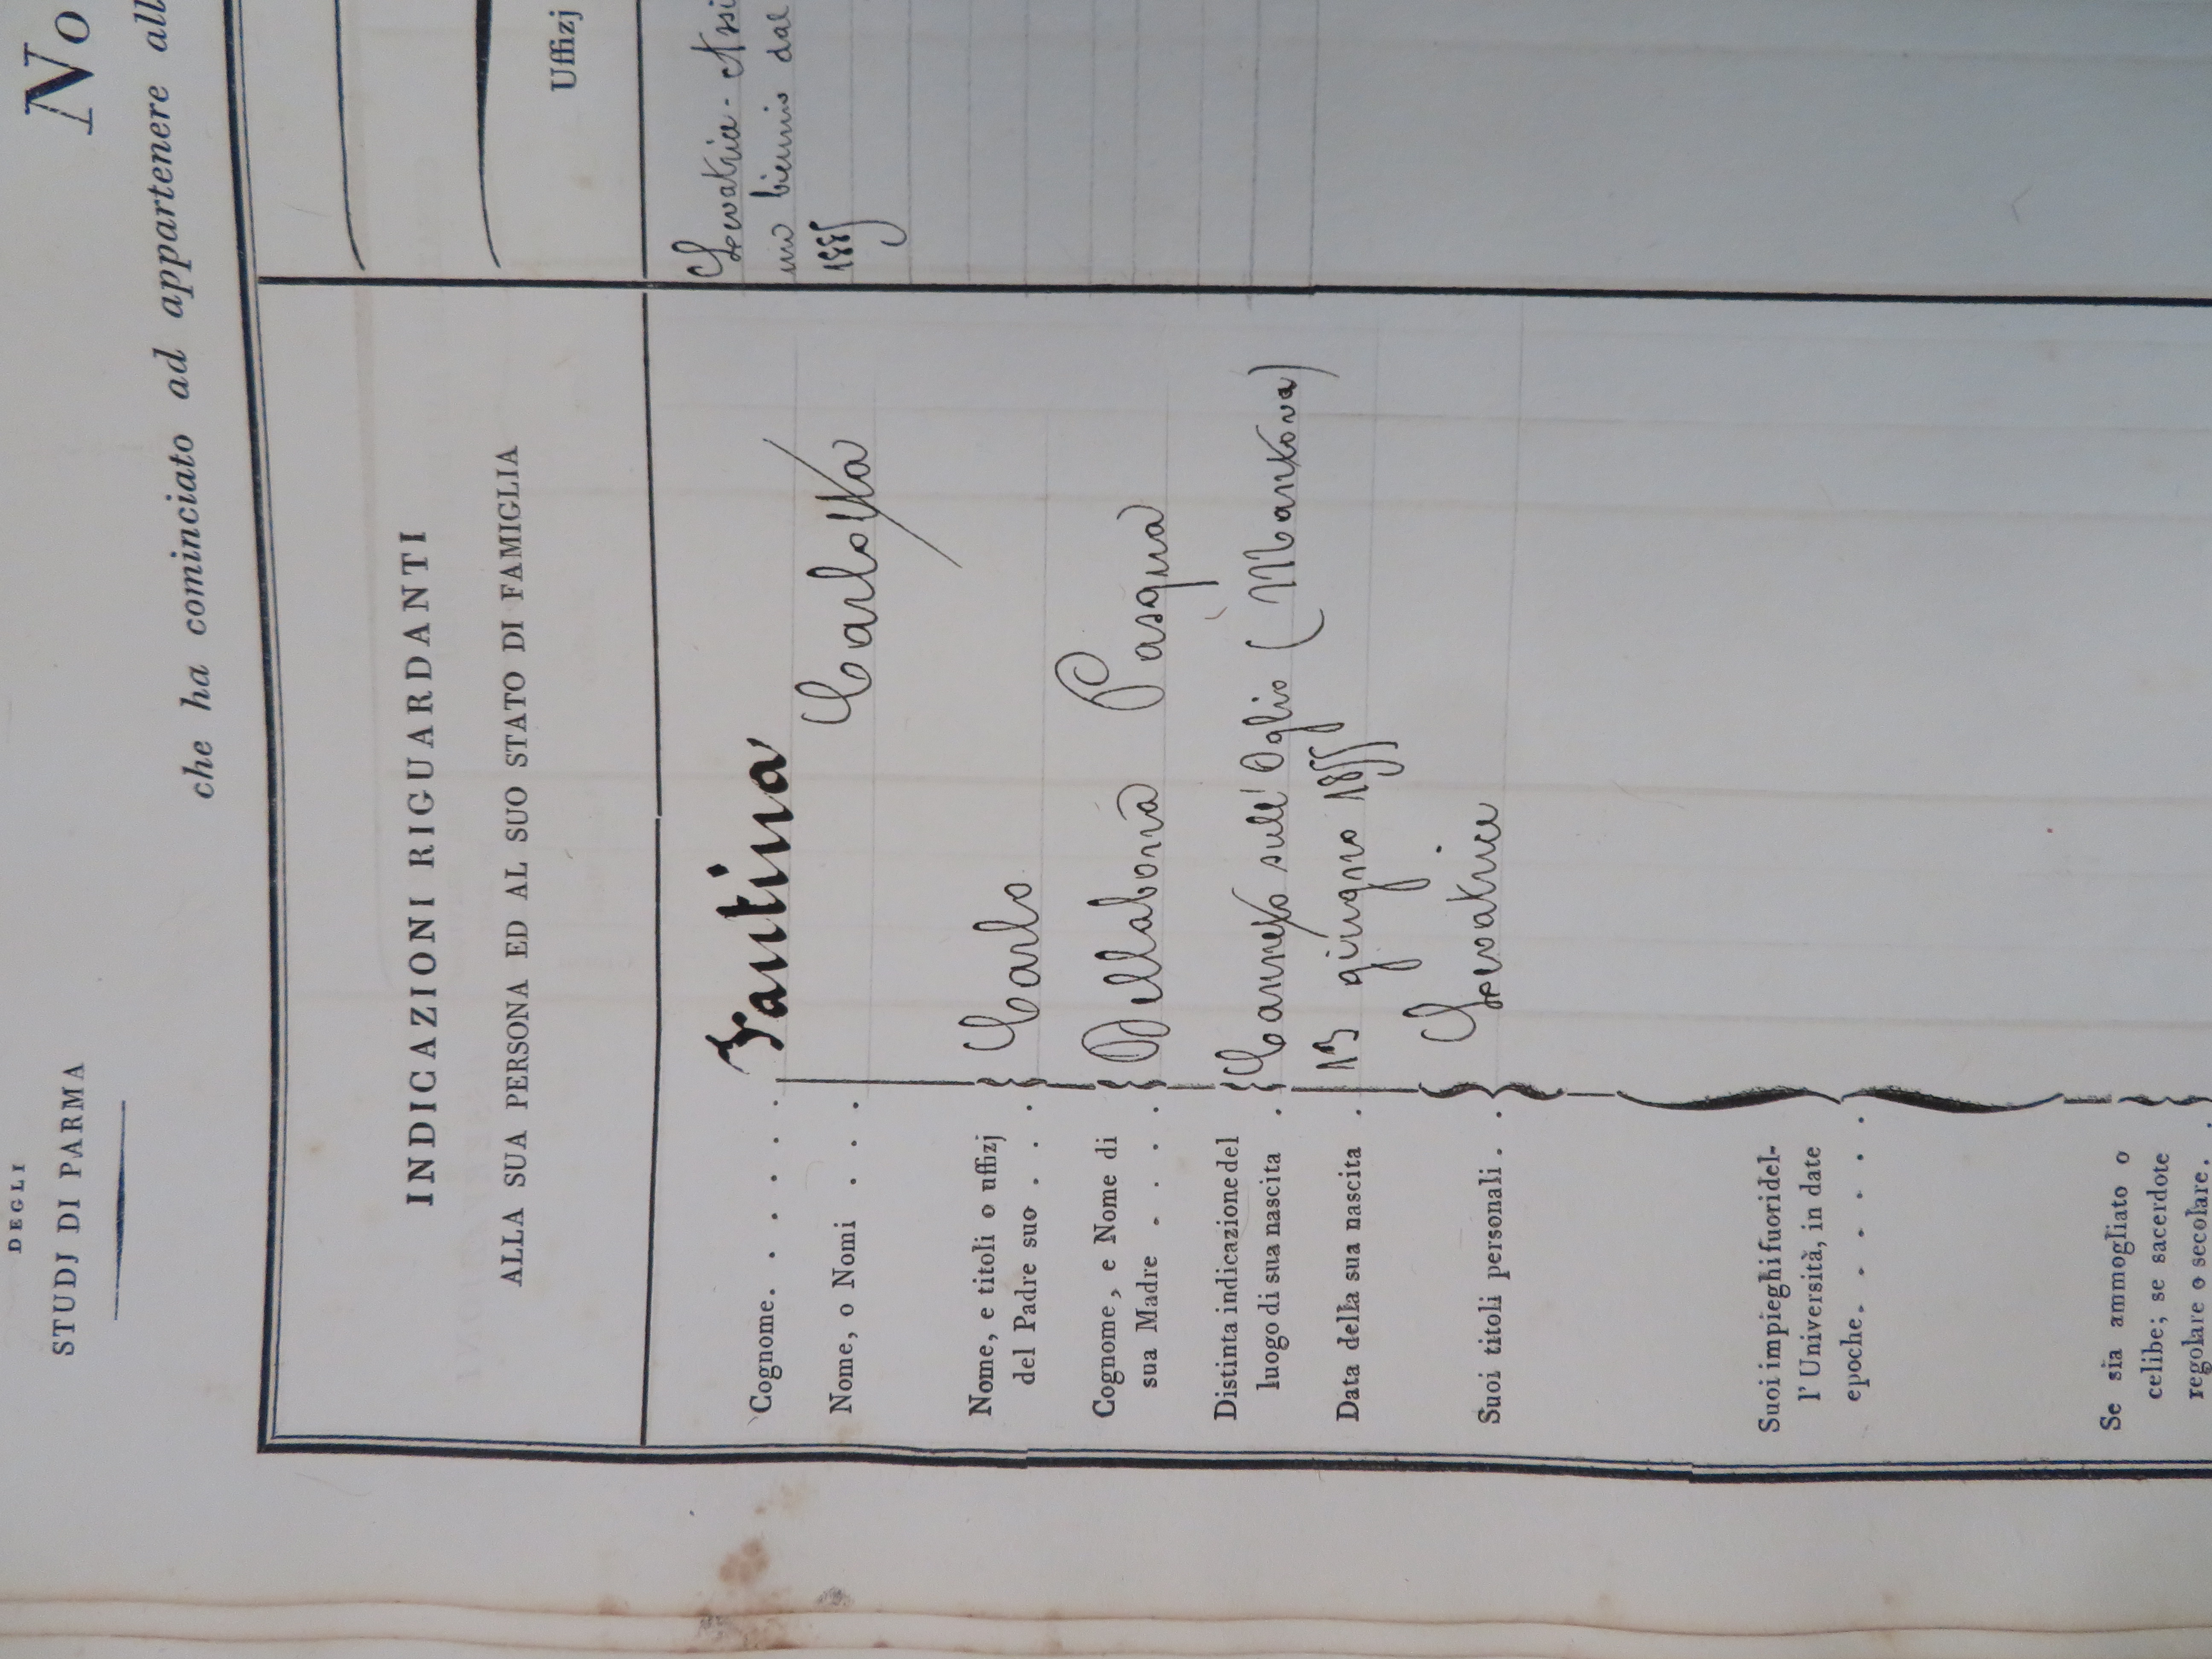 DEGLI
STUDJ DI PARMA
No
che ha cominciato ad appartenere all
INDICAZIONI RIGUARDANTI
ALLA SUA PERSONA ED AL SUO STATO DI FAMIGLIA
Cognome. . . . . . Fantina
Nome, o Nomi . . . . Carlotta
Nome, e titoli o uffizj
del Padre suo . . . Carlo
Cognome, e Nome di
sua Madre . . . . Dellabona Pasqua
Distinta indicazione del
luogo di sua nascita . Canneto sull' Oglio (Mantova)
Data della sua nascita . 13 giugno 1855
Suoi titoli personali . . Levatrice
Suoi impieghi fuori del-
l' Università, in date
epoche. . . . . . .
Se sia ammogliato o
celibe; se sacerdote
regolare o secolare. .
Uffizj
Levatrice - Assi
un biennio dal
1885